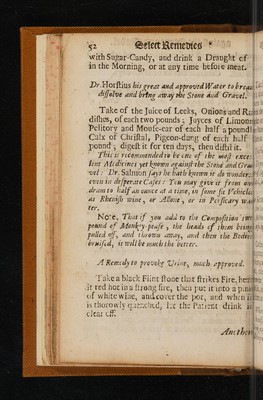 52 Select Remedies
with Sugar-Candy, and drink a Draught of
in the Morning, or at any time before meat.
Dr. Horstius his great and approved Water to break
dissolve and bring away the Stone and Gravel.
Take of the Juice of Leeks, Onions and
dishes, of each two pounds; Juyces of Limons
Pelitory and Mouse-ear of each half a pound
Calx of Christal, Pigeon-dung of each half
pound; digest it for ten days, then distil it.
This is recommended to be one of the most
lent Medicines yet known against the Stone and
vel: Dr. Salmon says he hath known it do wonders
even in desperate Cases: You may give it from
dram to half an ounce at a time, in some fit Vehicle
as Rhenish wine, or Allone, or in Persicary
ter.
Note, That if you add to the Composition
pound of Monky-pease, the heads of them being
pulled off, and thrown away, and then the Bodies
bruised, it will be much the better.
A Remedy to provoke Urine, much approved.
Take a black Flint stone that strikes Fire,
it red hot in a strong fire, then put it into a
of white wine, and cover the pot, and when
is thorowly quenched, let the Patient drink
clear off.
Another